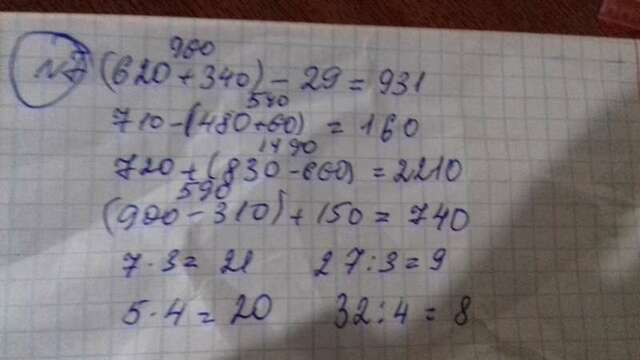 960
(620+340)-29=931
540
710-(480+60)=160
1490
720+(830-660)=2210
590
(900-310)+150=740
7·3=21 27:3=9
5·4=20 32:4=8